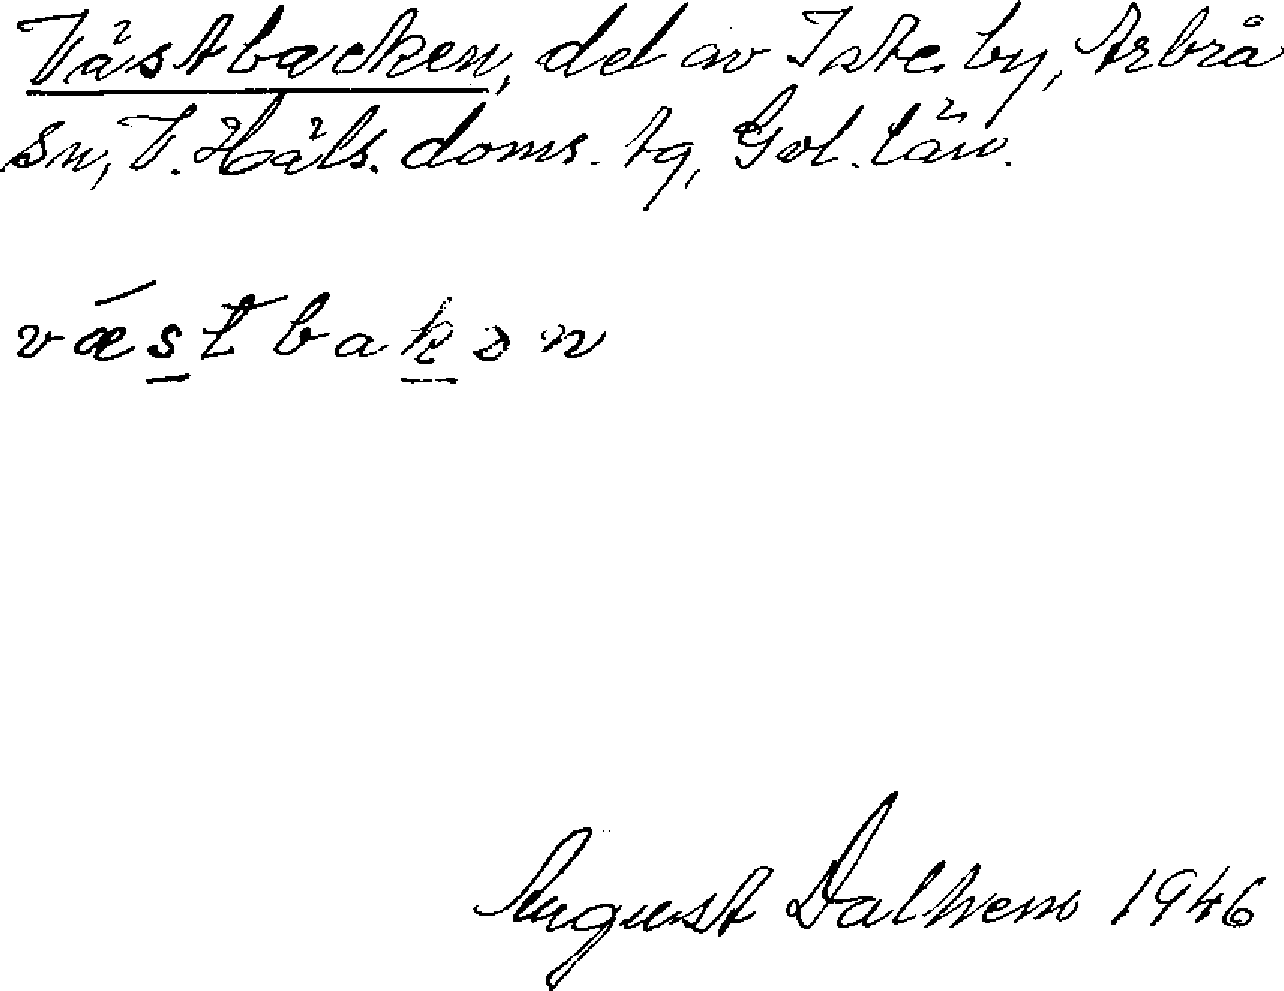 Västbacken, del av Iste by, Arbrå
sn, V. Häls. doms. tg, Gvl. län.
væstbakən
August Dalhem 1946